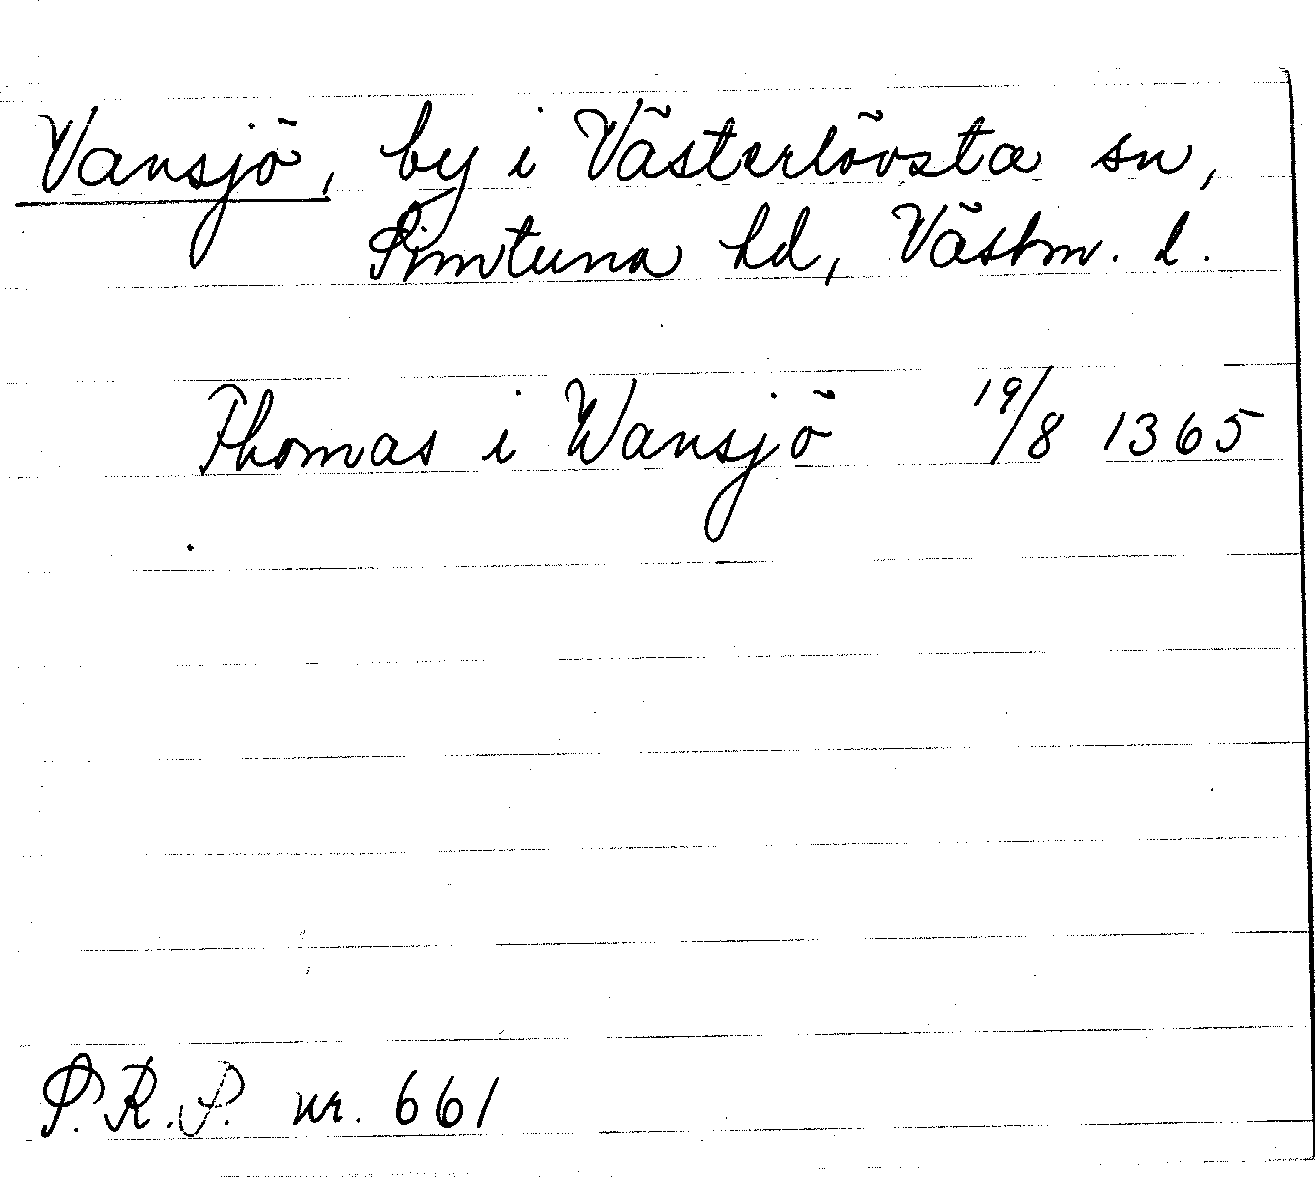 Vansjö, by i Västerlövsta sn,
Simtuna hd, Västm. l.
Thomas i Wansjö 19/8 1365
S.R.P. nr. 661